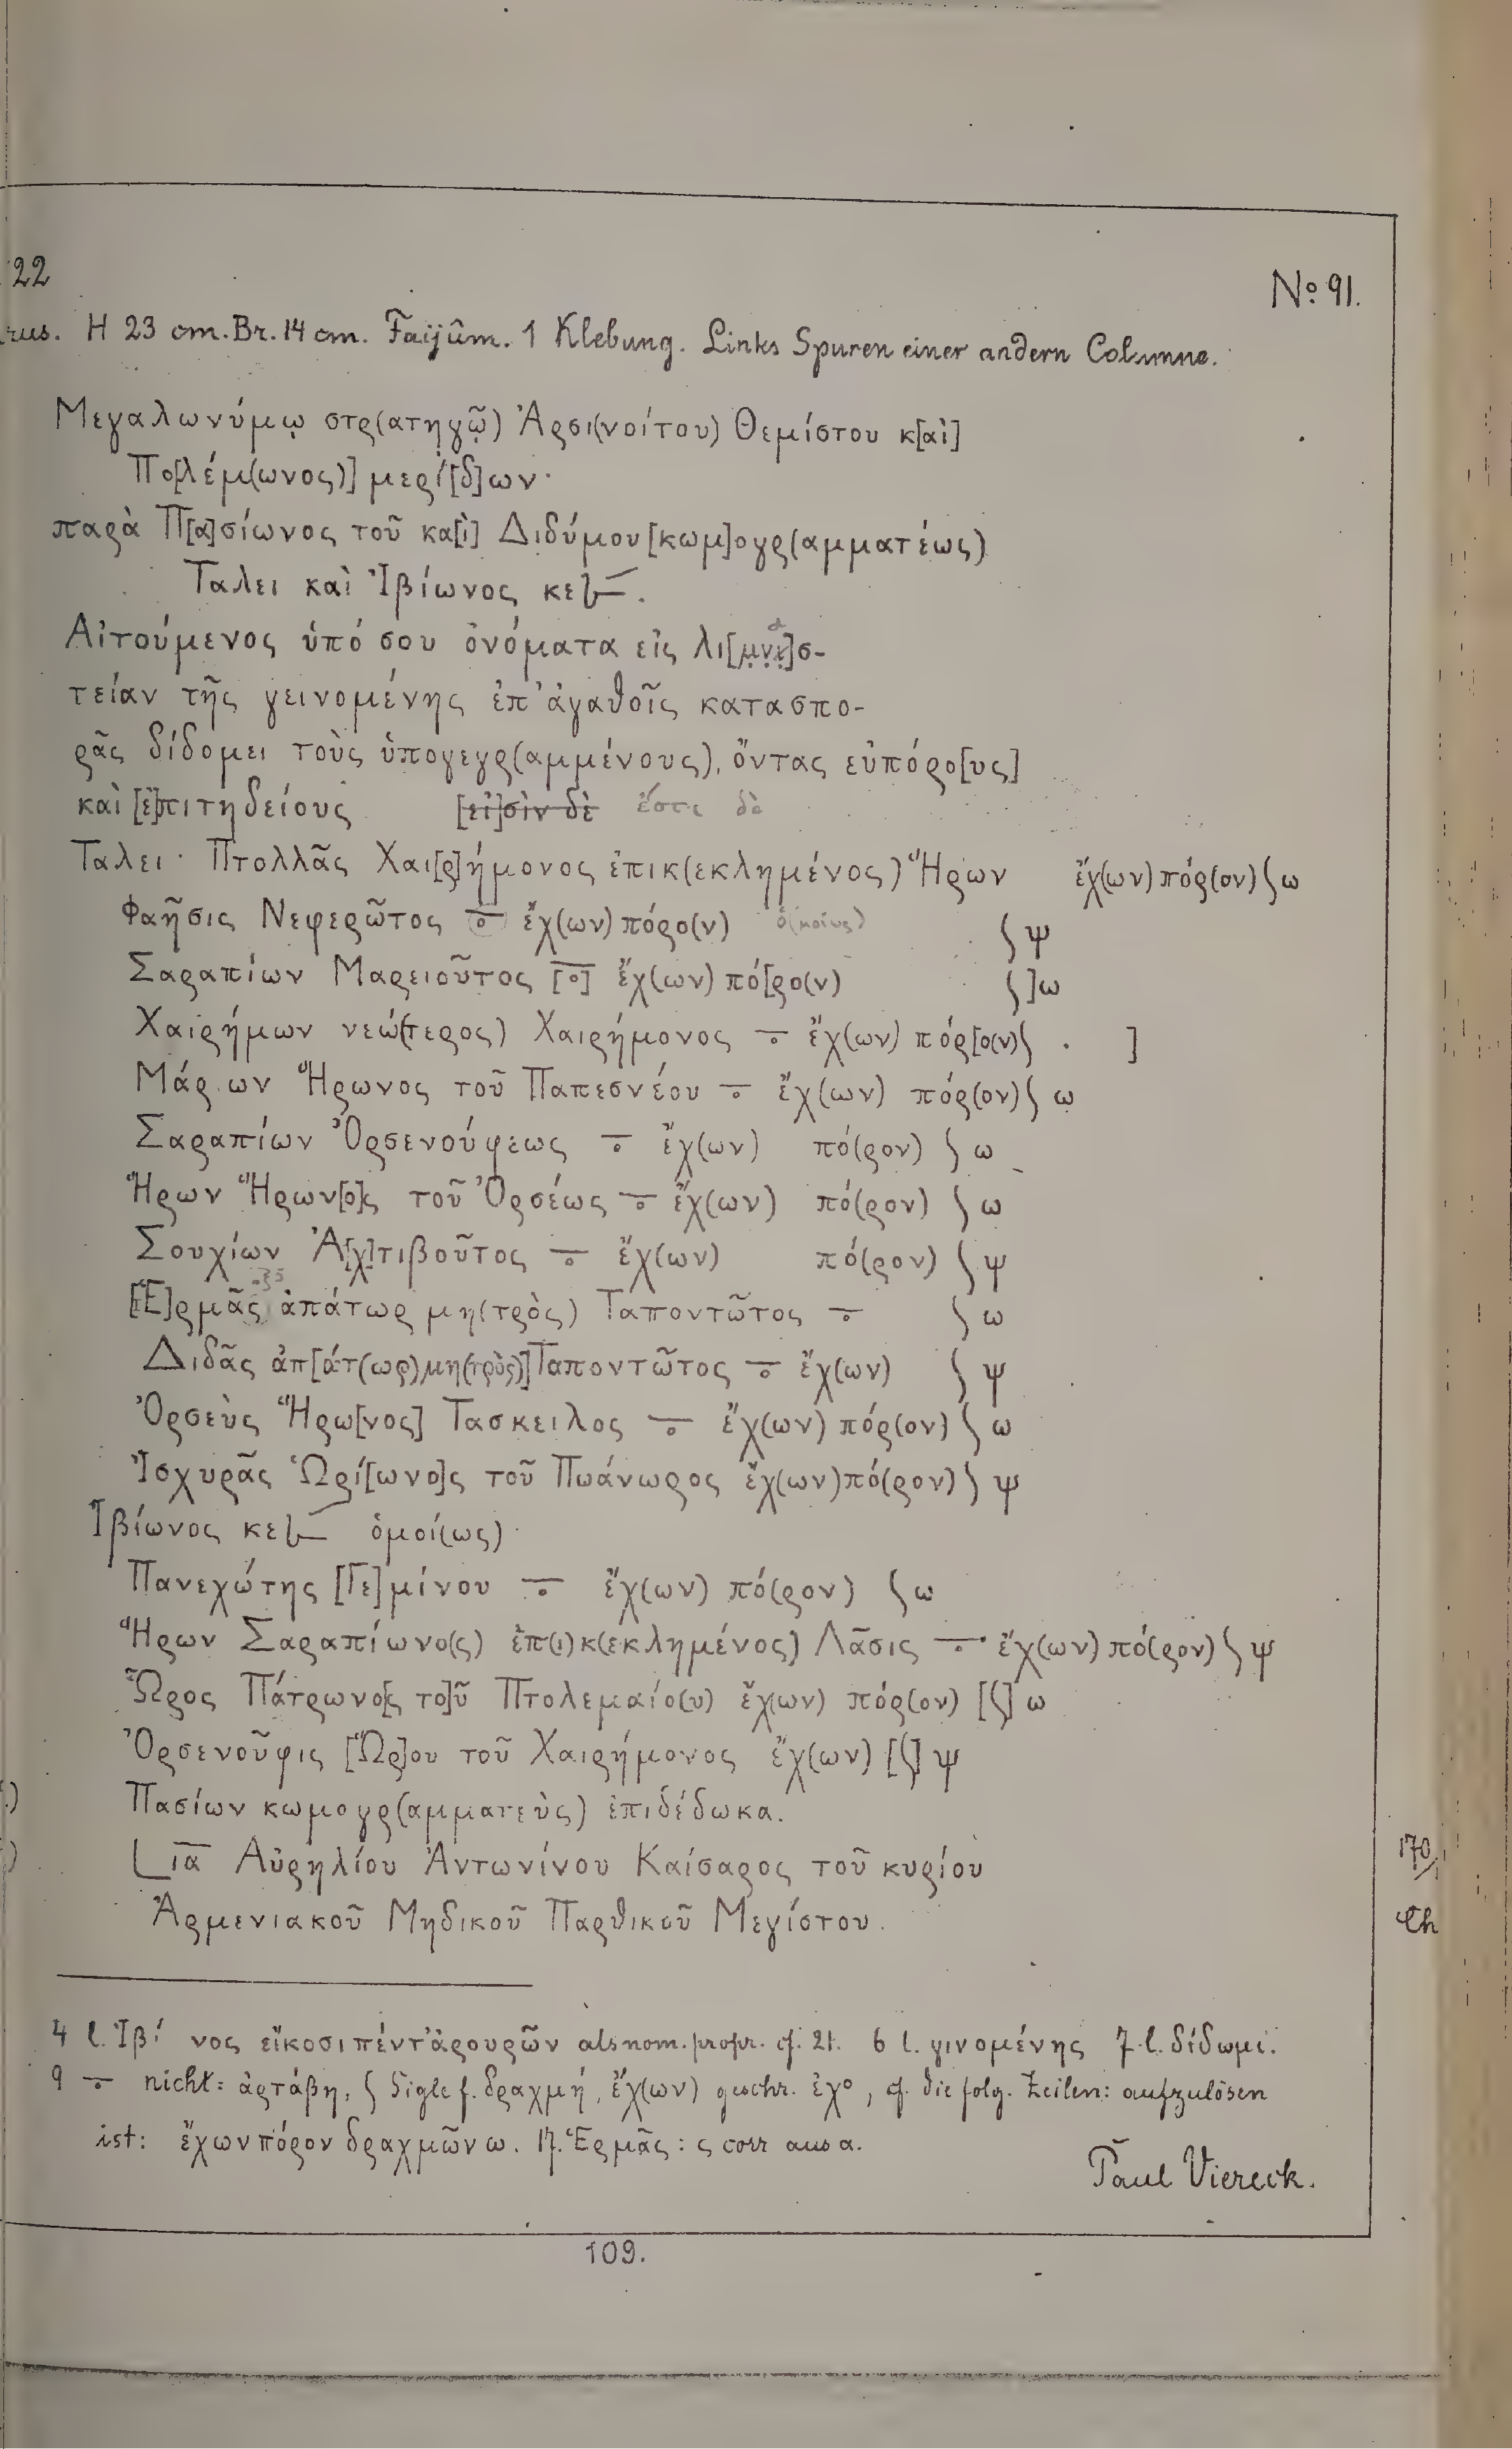 22
No 91.
rus. H 23 cm. Br. 14 cm. Faijûm. 1 Klebung. Links Spuren einer andern Columne.
Μεγαλωνύμῳ στρ(ατηγῷ) Ἀρσι(νοίτου) Θεμίστου κ[αὶ]
Πο[λέμ(ωνος)] μερί[δ]ων·
παρὰ Π[α]σίωνος τοῦ κα[ὶ] Διδύμου [κωμ]ογρ(αμματέως)
Ταλει καὶ Ἰβίωνος
Αἰτούμενος ὑπό σου ὀνόματα εἰς
τείαν τῆς γεινομένης ἐπ' ἀγαθοῖς κατασπο-
ρᾶς δίδομει τοὺς ὑπογεγρ(αμμένους), ὄντας εὐπόρο[υς]
καὶ [ἐ]πιτηδείους [εἰ]σὶν δὲ ἔστι δὲ
Ταλει· Πτολλᾶς Χαι[ρ]ήμονος ἐπικ(εκλημένος) Ἥρων ἔχ(ων) πόρ(ον) ʃ ω
Φαῆσις Νεφερῶτος ∸ ἔχ(ων) πόρο(ν) ὁ(μοίως) ʃ ψ
Σαραπίων Μαρειοῦτος [∸] ἔχ(ων) πό[ρο(ν) ʃ ]ω
Χαιρήμων νεώ(τερος) Χαιρήμονος ∸ ἔχ(ων) πόρ[ο(ν) ʃ . ]
Μάρ.ων Ἥρωνος τοῦ Παπεσνέου ∸ ἔχ(ων) πόρ(ον) ʃ ω
Σαραπίων Ὀρσενούφεως ∸ ἔχ(ων) πό(ρον) ʃ ω
Ἥρων Ἥρων[ο]ς τοῦ Ὀρσέως ∸ ἔχ(ων) πό(ρον) ʃ ω
Σουχίων Ἀ[χ]τιβοῦτος ∸ ἔχ(ων) πό(ρον) ʃ ψ
[Ἑ]ρμᾶς ἀπάτωρ μη(τρὸς) Ταποντῶτος ∸ ʃ ω
Διδᾶς ἀπ[άτ(ωρ) μη(τρὸς)] Ταποντῶτος ∸ ἔχ(ων) ʃ ψ
Ὀρσεὺς Ἥρω[νος] Τασκειλος ∸ ἔχ(ων) πόρ(ον) ʃ ω
Ἰσχυρᾶς Ὡρί[ωνο]ς τοῦ Πωάνωρος ἔχ(ων) πό(ρον) ʃ ψ
Ἰβίωνος ὁμοί(ως)·
Πανεχώτης [Γε]μίνου ∸ ἔχ(ων) πό(ρον) ʃ ω
Ἥρων Σαραπίωνο(ς) ἐπ(ι)κ(εκλημένος) Λᾶσις ∸ ἔχ(ων) πό(ρον) ʃ ψ
Ὧρος Πάτρωνο[ς το]ῦ Πτολεμαίο(υ) ἔχ(ων) πόρ(ον) [ʃ] ω
Ὀρσενοῦφις [Ὥρ]ου τοῦ Χαιρήμονος ἔχ(ων) [ʃ] ψ
Πασίων κωμογρ(αμματεὺς) ἐπιδέδωκα.
L ια Αὐρηλίου Ἀντωνίνου Καίσαρος τοῦ κυρίου
Ἀρμενιακοῦ Μηδικοῦ Παρθικοῦ Μεγίστου.
170/
Ch
4 l. Ἰβί νος εἴκοσι πέντ' ἀρουρῶν als nom. propr. cf. 21. 6 l. γινομένης 7 l. δίδωμι.
9 ∸ nicht: ἀρτάβη, ʃ Sigle f. δραχμή, ἔχ(ων) geschr. ἐχο, cf. die folg. Zeilen: aufzulösen
ist: ἔχων πόρον δραχμῶν ω. 17. Ἑρμᾶς: ς corr aus α.
Paul Viereck.
109.